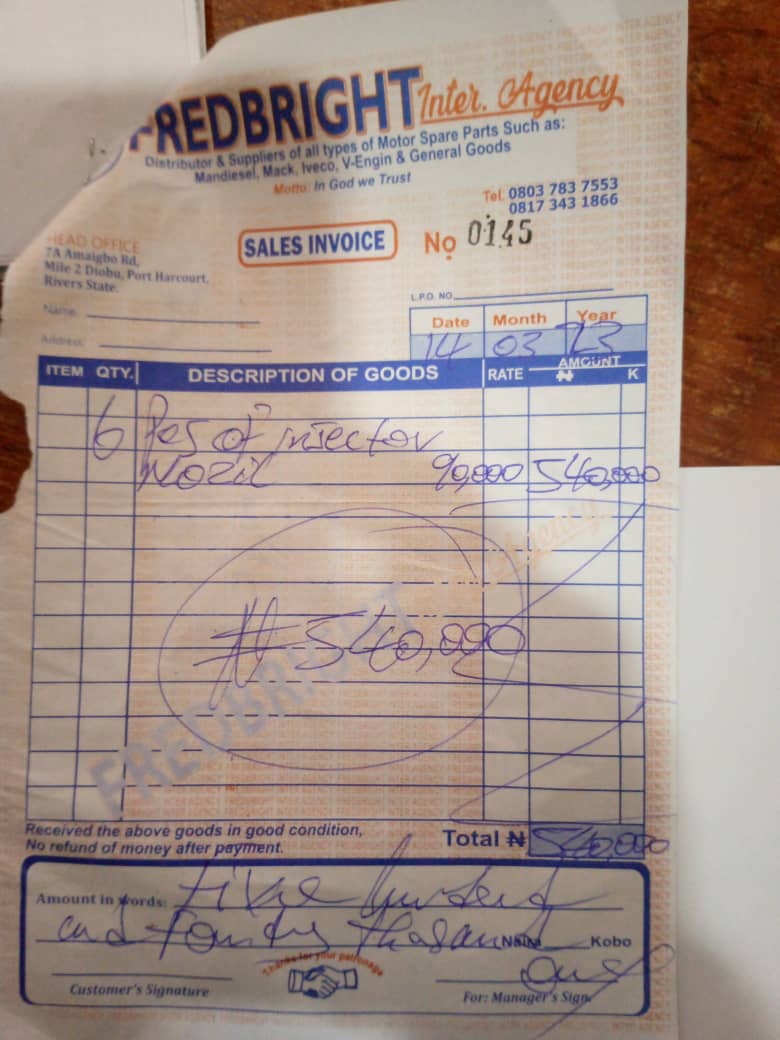 FREDBRIGHT Inter. Agency
Distributor & Suppliers of all types of Motor Spare Parts Such as:
Mandiesel, Mack, Iveco, V-Engin & General Goods
Motto: In God we Trust
Tel. 0803 783 7553
0817 343 1866
HEAD OFFICE
7A Amaigbo Rd,
Mile 2 Diobu, Port Harcourt,
Rivers State.
SALES INVOICE
Nọ 0145
L.P.O. NO.
Name
Address
Date Month Year
14 03 23
ITEM QTY. DESCRIPTION OF GOODS RATE AMOUNT
₦ K
6 Pcs of injector
Nozil 90,000 540,000
#540,000
FREDBRIGHT Inter. Agency
Received the above goods in good condition,
No refund of money after payment.
Total ₦ 540,000
Amount in words: Five hundred
and Fourty thosand Naira Kobo
Thanks for your patronage
Customer's Signature
For: Manager's Sign.